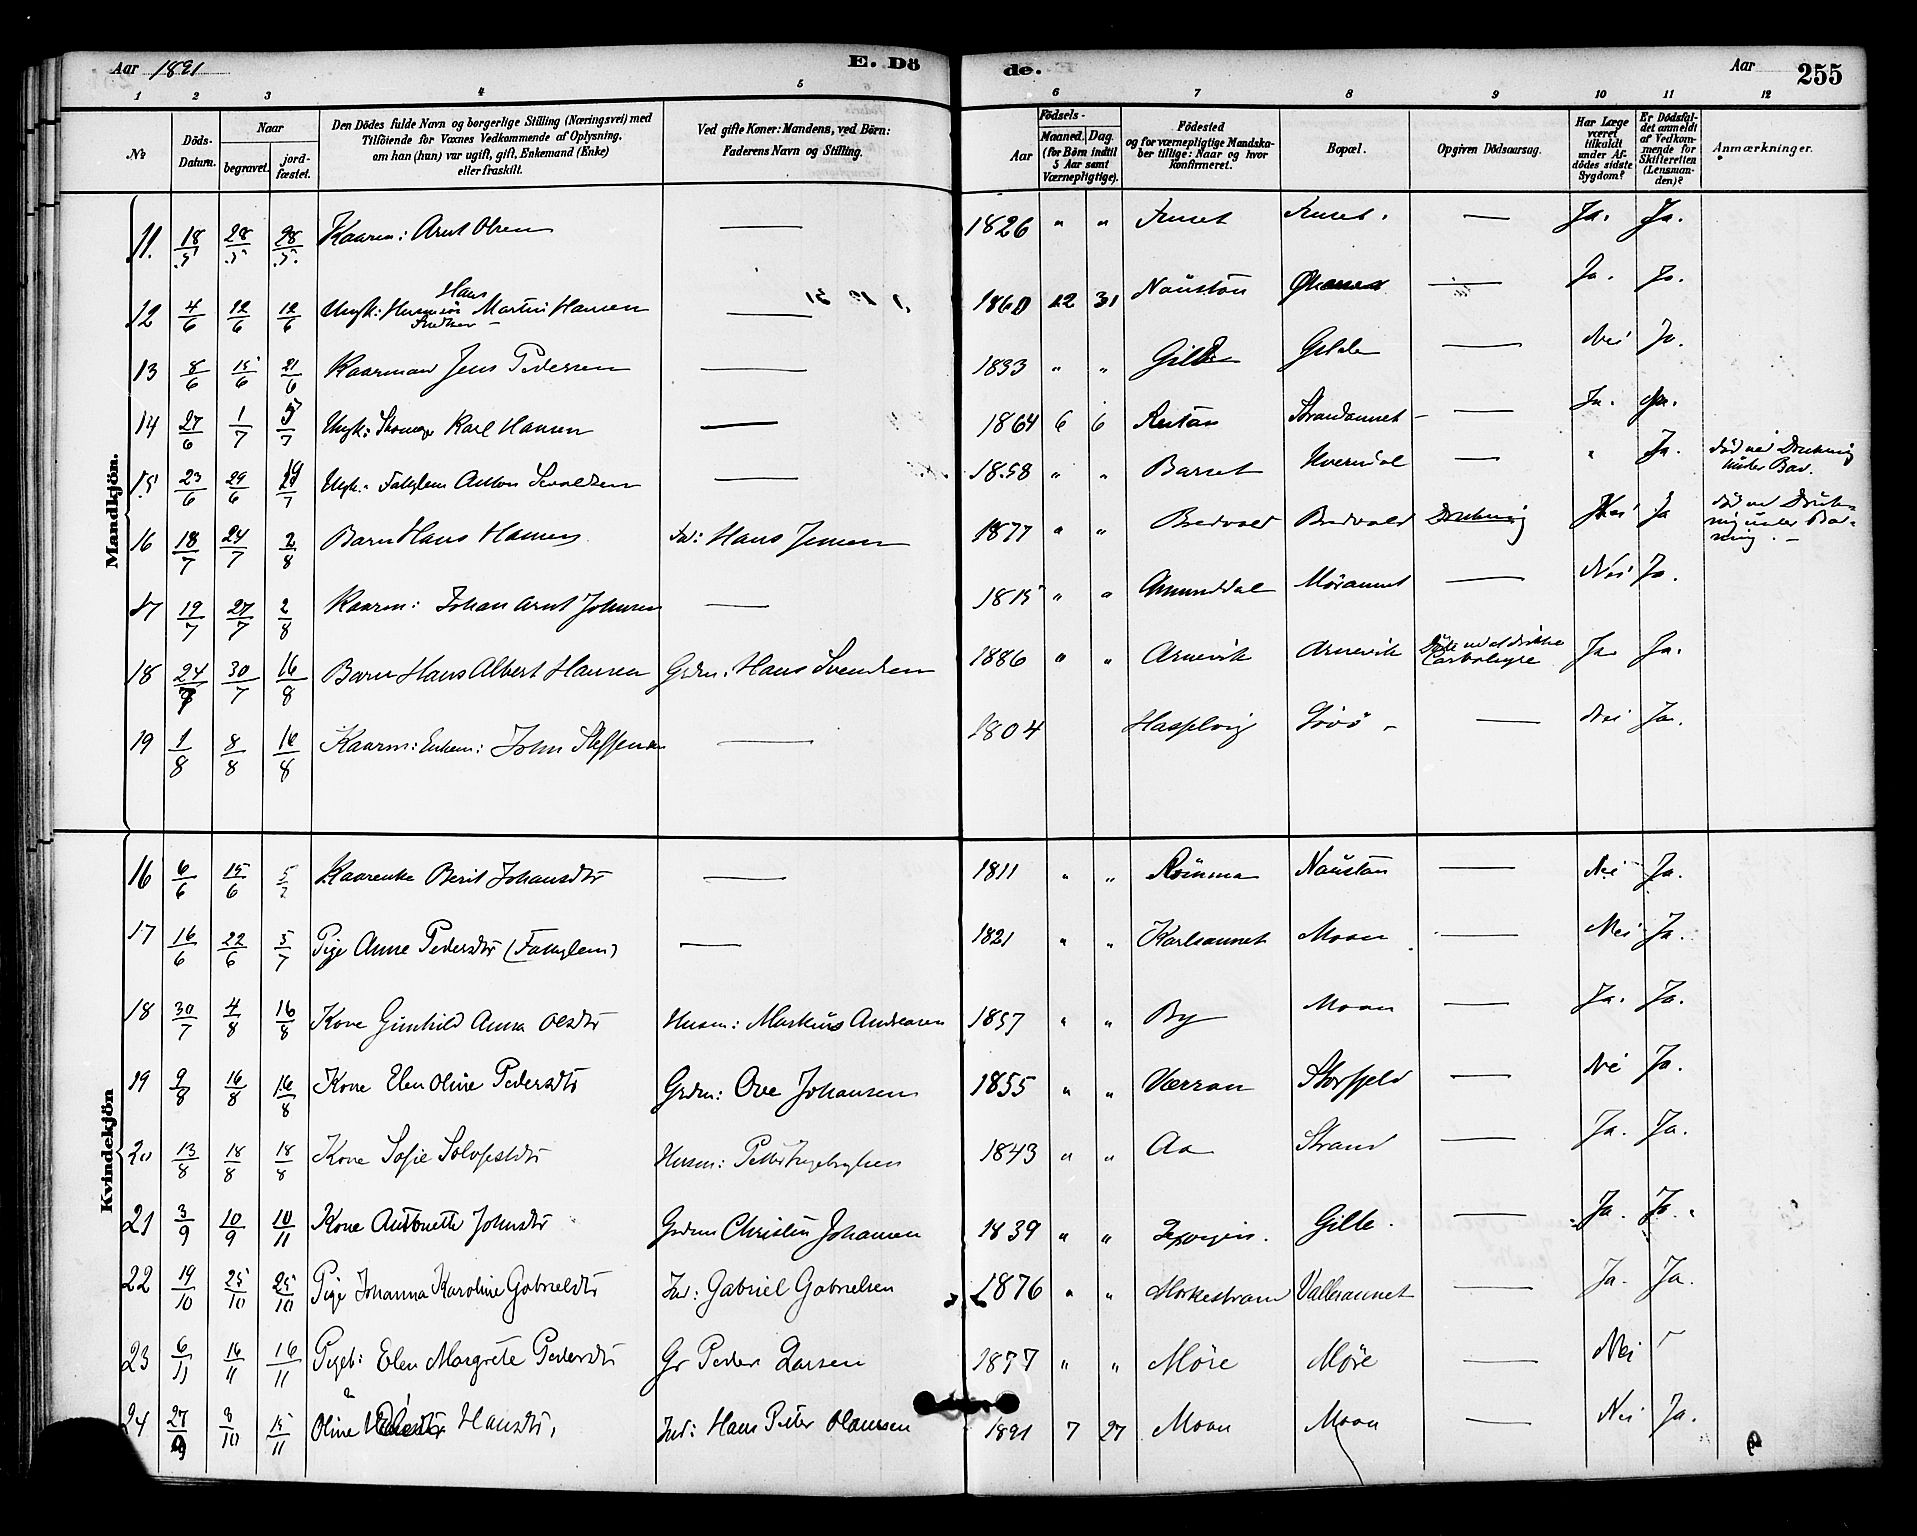 Aar 1891 E. Döde. Aar 255
1 2 3 4 5 6 7 8 9 10 11 12
No. Döds-Datum. Naar begravet. jordfæstet. Den Dödes fulde Navn og borgerlige Stilling (Næringsvei) med Tilföiende for Voxnes Vedkommende af Oplysning, om han (hun) var ugift, gift, Enkemand (Enke) eller fraskilt. Ved gifte Koner: Mandens, ved Börn: Faderens Navn og Stilling. Aar Födsels- Maaned. Dag. (for Børn indtil 5 Aar samt Værnepligtige). Födested og for værnepligtige Mandskaber tillige: Naar og hvor konfirmeret. Bopæl. Opgiven Dödsaarsag. Har Læge været tilkaldt under Afdödes sidste Sygdom? Er Dödsfaldet anmeldt af Vedkommende for Skifteretten (Lensmanden)? Anmærkninger.
Mandkjön.
11. 18/5 28/5 28/5. Kaarm: Arnt Olsen — 1826 " " — Ja. Ja.
12 4/6 12/6 12/6 Ungk: Hans Martin Hansen — 1860 12 31 Naustan — Ja. Ja.
13 8/6 15/6 21/6 Kaarmand Jens Pedersen — 1833 " " Gilde Gilde — Nei Ja.
14 27/6 1/7 5/7 Ungk: Karl Hansen — 1864 6 6 Strandaunet — Ja. Ja.
15 23/6 29/6 19/7 Ungk. Fattiglem Anton — 1858 " " Barset — " Ja. död ved Drukning under Bad.
16 18/7 24/7 2/8 Barn Hans Hansen Ind: Hans Jensen 1877 " " Bredvold Bredvold Drukning Nei Ja död ved Drukning under Badning. —
17 19/7 27/7 2/8 Kaarm: Johan Arnt Johnsen — 1815 " " Amunddal Möraunet — Nei Ja.
18 24/7 30/7 16/8 Barn Hans Albert Hansen Grdm: Hans Svendsen 1886 " " Arnevik Arnevik Döde ved at drikke Carbolsyre Ja Ja.
19 1/8 8/8 16/8 Kaarm: Enkem: John Steffensen — 1804 Hasselvig — Nei Ja.
Kvindekjön
16 6/6 15/6 5/7 Kaarenke Berit Johansdtr — 1811 " " Römma Naustan — Nei Ja.
17 16/6 22/6 5/7 Pige Anne Pedersdtr (Fattiglem) — 1821 " " Karlsaunet Moan — Nei Ja.
18 30/7 4/8 16/8 Kone Gunhild Anna Olsdtr Husm: Markus Andreasen 1857 " " By Moan — Ja. Ja.
19 9/8 16/8 16/8 Kone Elen Oline Pedersdtr Grdm: Ove Johansen 1855 " " Værran Storfjeld — Nei Ja.
20 13/8 18/8 18/8 Kone Sofie Solofestdtr Husm: Petter Ingebrigtsen 1843 " " Aa Strand — Ja. Ja.
21 3/9 10/9 10/11 Kone Antonette Johnsdtr Grdm Christen Johansen 1839 " " Gille. — Ja. Ja.
22 19/10 25/10 25/10 Pige Johanna Karoline Gabrielsdtr Ind: Gabriel Gabrielsen 1876 " " Morkestrand Vallersaunet — Ja. Ja.
23 6/11 16/11 16/11 Pigeb: Elen Margrete Pedersdtr Gr Peder Larsen 1877 " " Möre Möre — Nei
24 27/9 8/10 15/11 Oline Hansdtr, Ind: Hans Peter Hanssen 1891 7 27 Moan Moan Nei Ja.